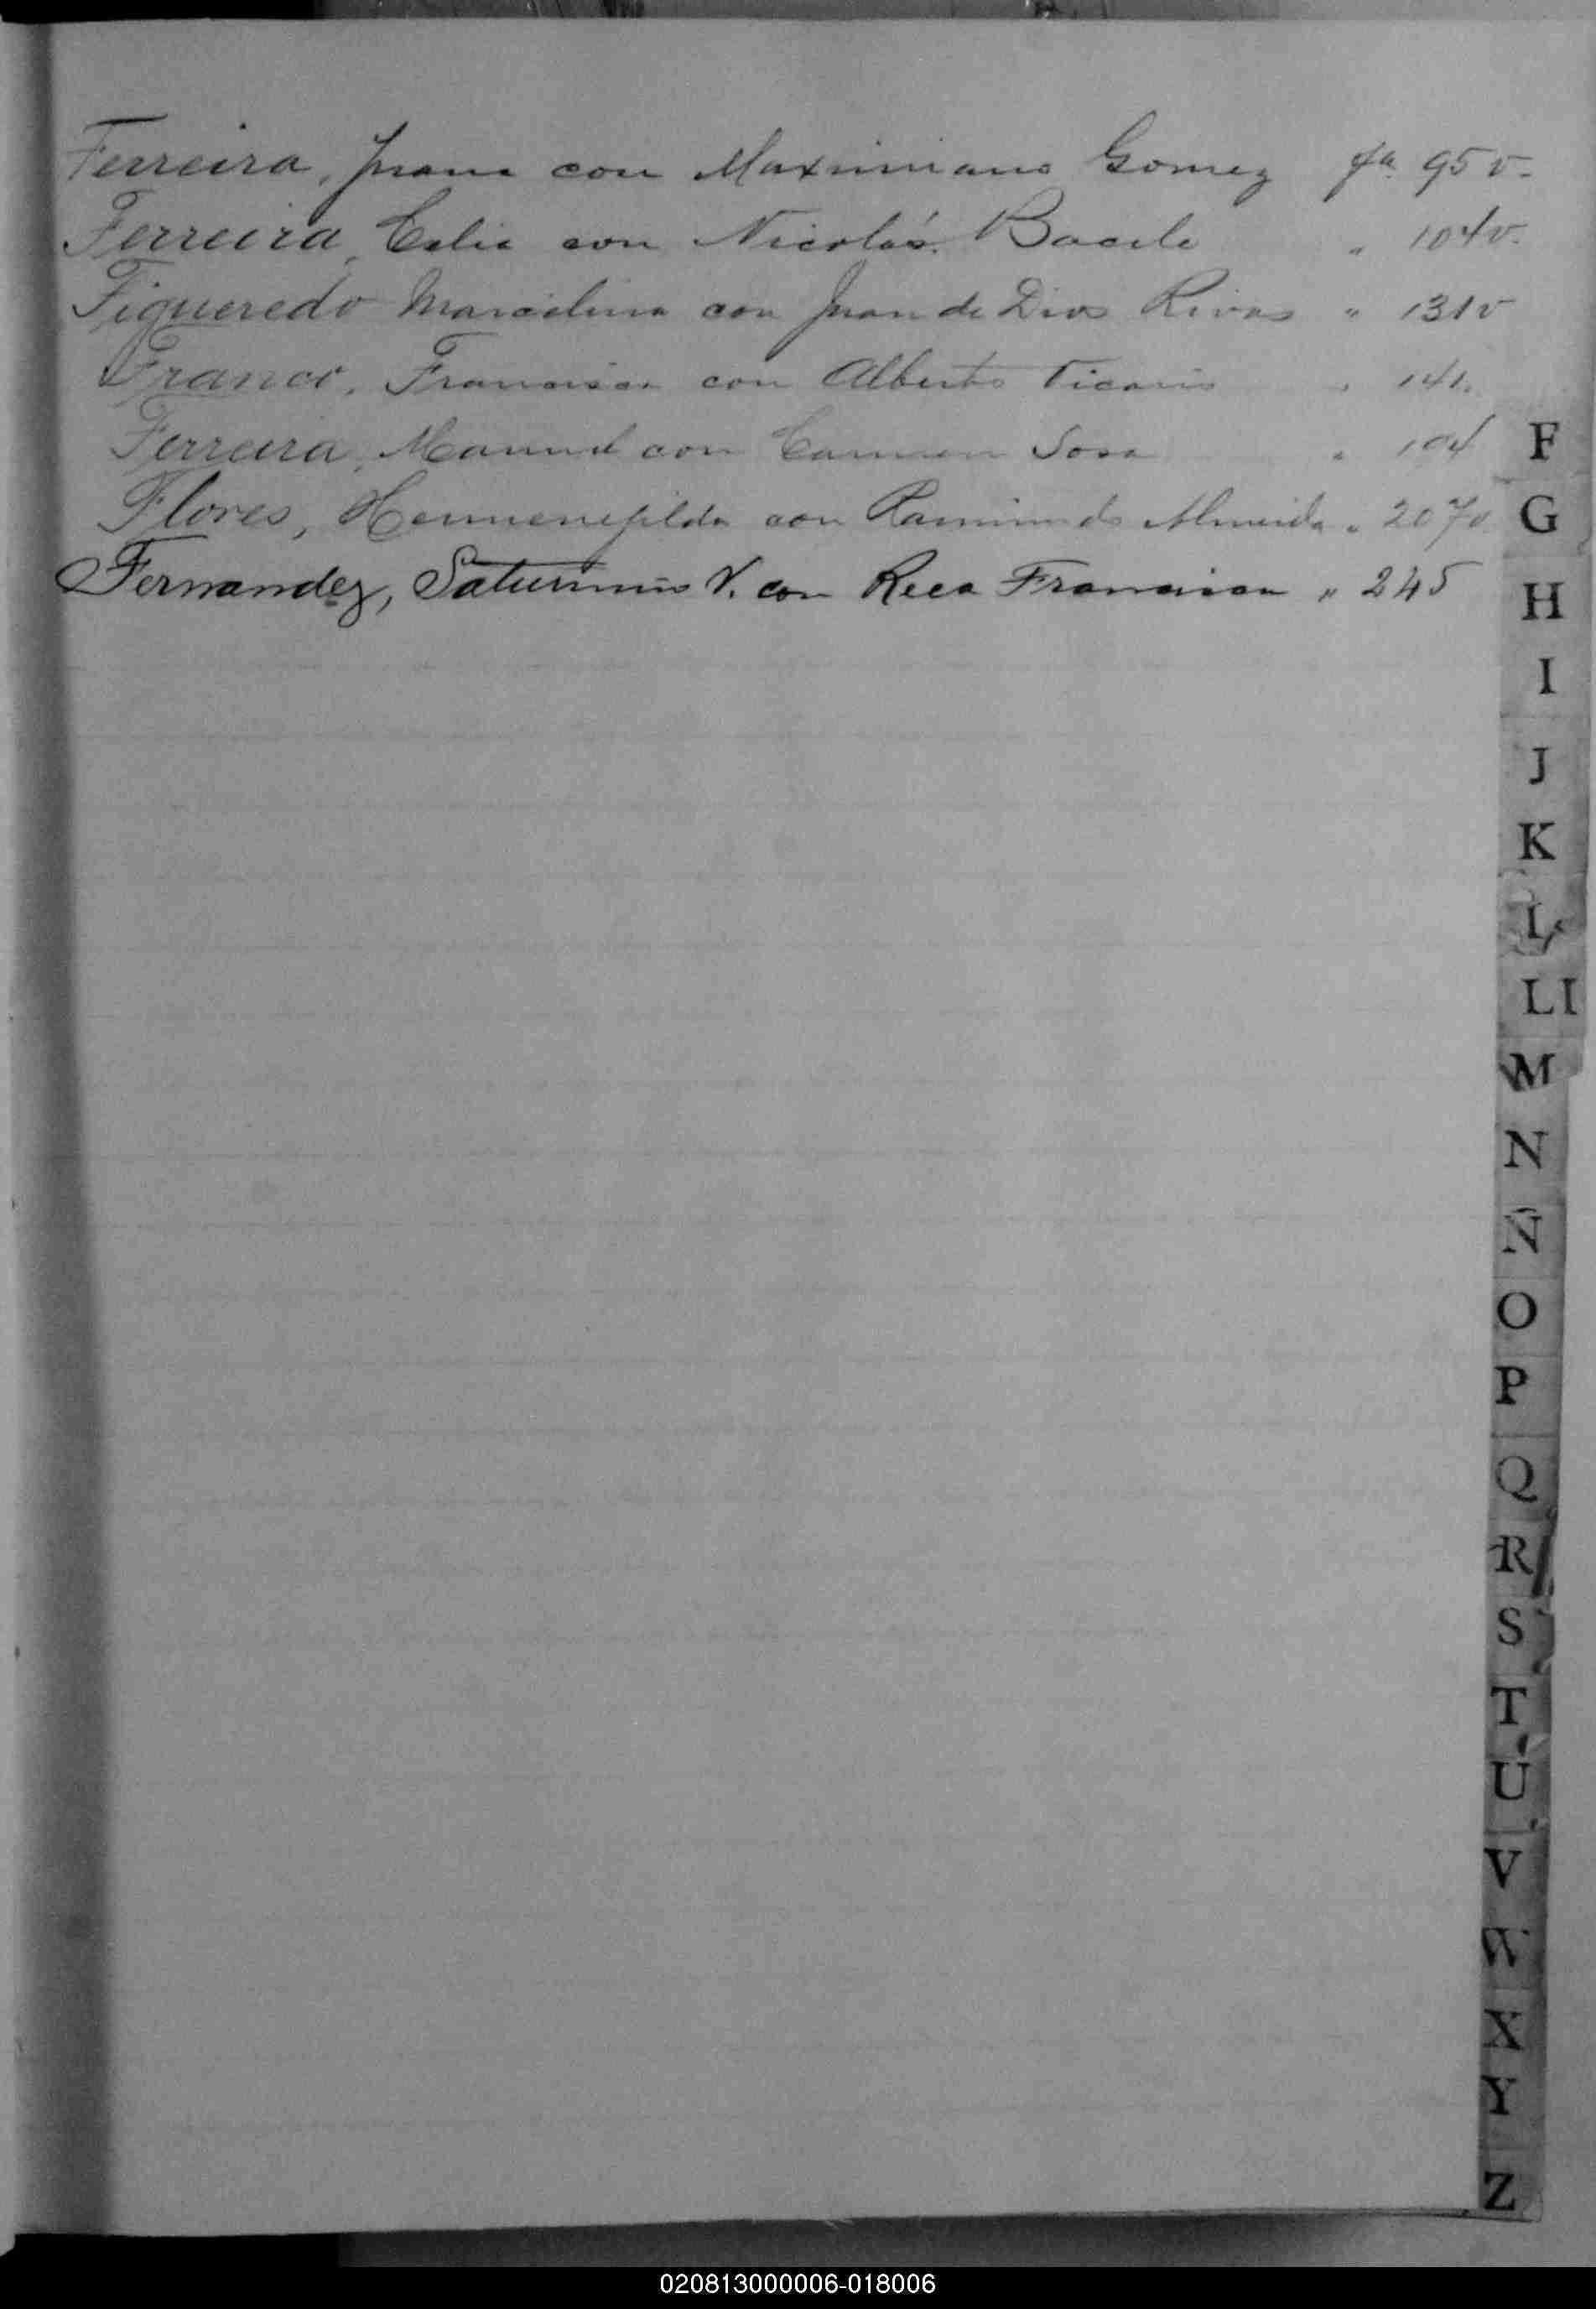 Ferreira, Juana con Maximiano Gomez fa. 95 v.
Ferreira, Celia con Nicolás Bacile " 104v.
Figueredo Marcelina con Juan de Dios Rivas " 131v
Franco, Francisca con Alberto Vicario " 141.
Ferreira, Manuel con Carmen Sosa " 194
Flores, Hermenejilda con Raimundo Almeida " 207v
Fernandez, Saturnino V. con Reca Francisca " 245
F
G
H
I
J
K
L
Ll
M
N
Ñ
O
P
Q
R
S
T
U
V
W
X
Y
Z
020813000006-018006